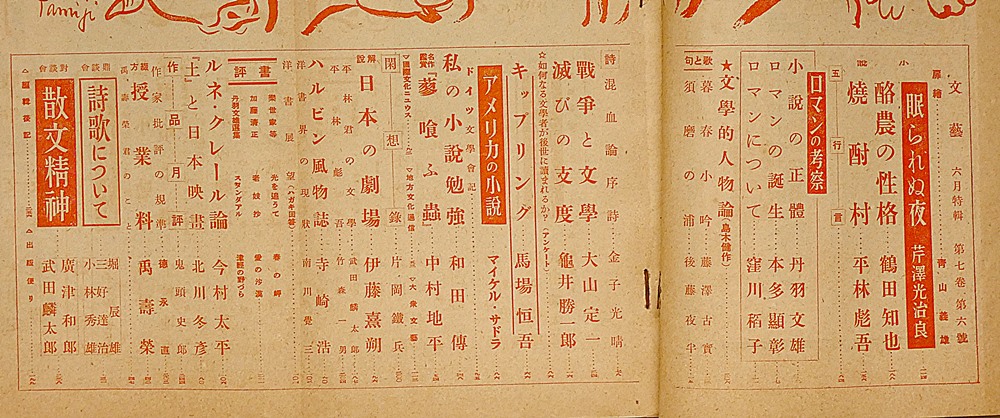 Tamiji
文藝 六月特輯 第七卷第六號
扉繪 青山義雄
小說
眠られぬ夜 芹澤光治良
酪農の性格 鶴田知也
燒酎村 平林彪吾
五行言
ロマンの考察
小說の正體 丹羽文雄
ロマンの誕生 本多顯彰
ロマンについて 窪川稻子
★文學的人物論(島木健作)
歌と句
暮春小吟 藤澤古實
須磨の浦 後藤夜半
詩 混血論序詩 金子光晴
戰爭と文學 大山定一
滅びの支度 龜井勝一郎
☆如何なる文學者が後世に讀まれるか?(アンケート)
キップリング 馬場恒吾
アメリカの小說 マイケル・サドラ
ドイツ文學會記
私の小說勉強 和田傳
名作鑑賞『蓼喰ふ蟲』 中村地平
▽國際文化ニュウス
▽地方文化通信
▽大衆文藝
閑想錄 片岡鐵兵
解說 日本の劇場 伊藤熹朔
平林君の文學 武田麟太郎
平林彪吾 竹森一男
ハルビン風物誌 寺崎浩
洋書界の現狀 南川覺三
洋書展望(ハガキ回答)
書評
樂世家等
加藤清正
丹羽文雄選集
光を追うて
老妓抄
スタンダアル
春の岬
愛の沙漠
津輕の野づら
ルネ・クレール論 今村太平
『土』と日本映畫 北川冬彥
作品月評 鬼頭史郎
作家批評の規準 德永直
授業料 禹壽榮
禹壽榮君のこと
鼎談會
詩歌について
堀辰雄
三好達治
小林秀雄
對談會
散文精神
廣津和郎
武田麟太郎
△編輯後記
△出版便り